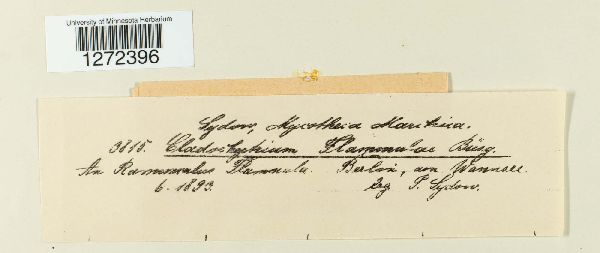 University of Minnesota Herbarium
1272396
Sydow, Mycotheca Marchica.
3815. Cladochytrium Flammulae Büsg.
An Ranunculus Flammula. Berlin, am Wannsee.
6. 1893. leg P. Sydow.